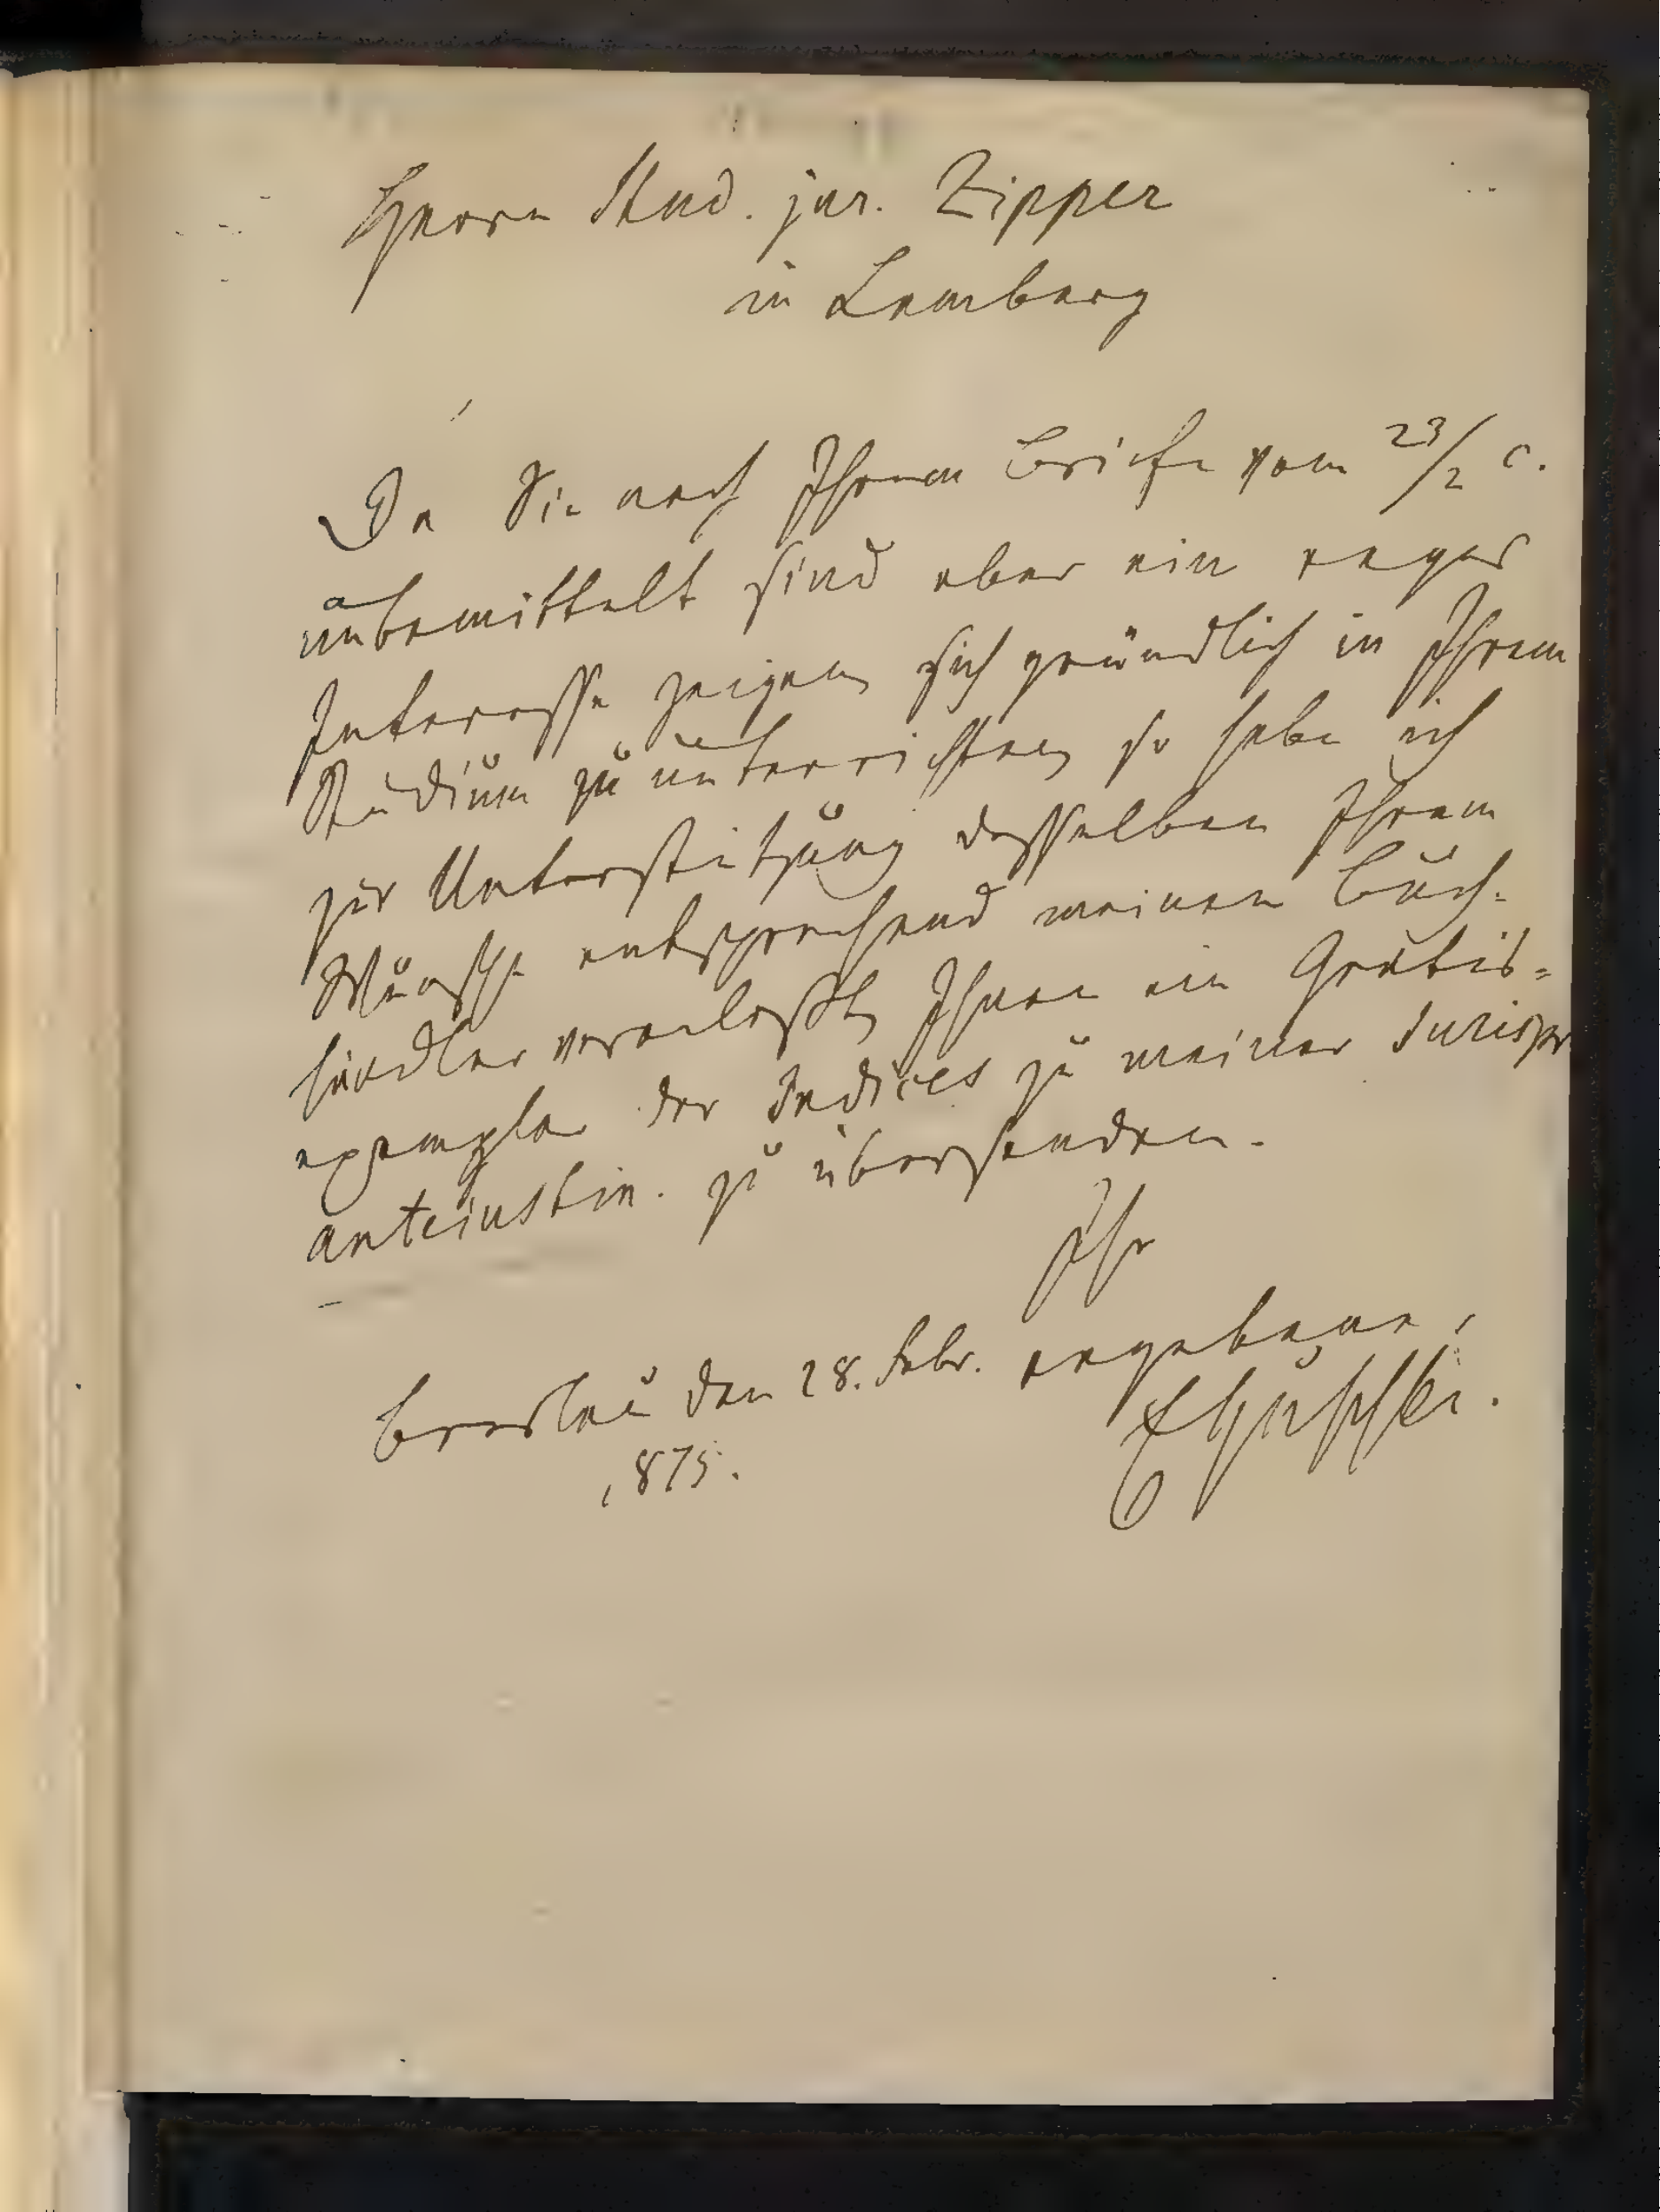 Herrn Stud. jur. Zipper
in Lemberg
Da Sie nach Ihrem Briefe vom 23/2 c.
unbemittelt sind aber ein reges
Interesse zeigen, sich gründlich in Ihrem
Studium zu unterrichten, so habe ich
zur Unterstützung desselben Ihrem
Wunsche entsprechend meinen Buch-
händler veranlaßt, Ihnen ein Gratis-
exemplar der Indices zu meiner Jurispr
anteiustin. zu übersenden.
Ihr
ergebener
Breslau den 28. Febr.
EHuschke.
1875.